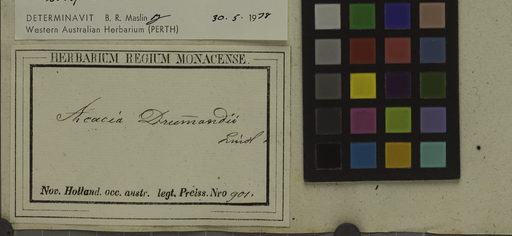 DETERMINAVIT B. R. Maslin 30. 5. 1978
Western Australian Herbarium (PERTH)
HERBARIUM REGIUM MONACENSE.
Acacia Drummondii
Lindl
Nov. Holland. occ. austr. legt. Preiss. Nro 901.